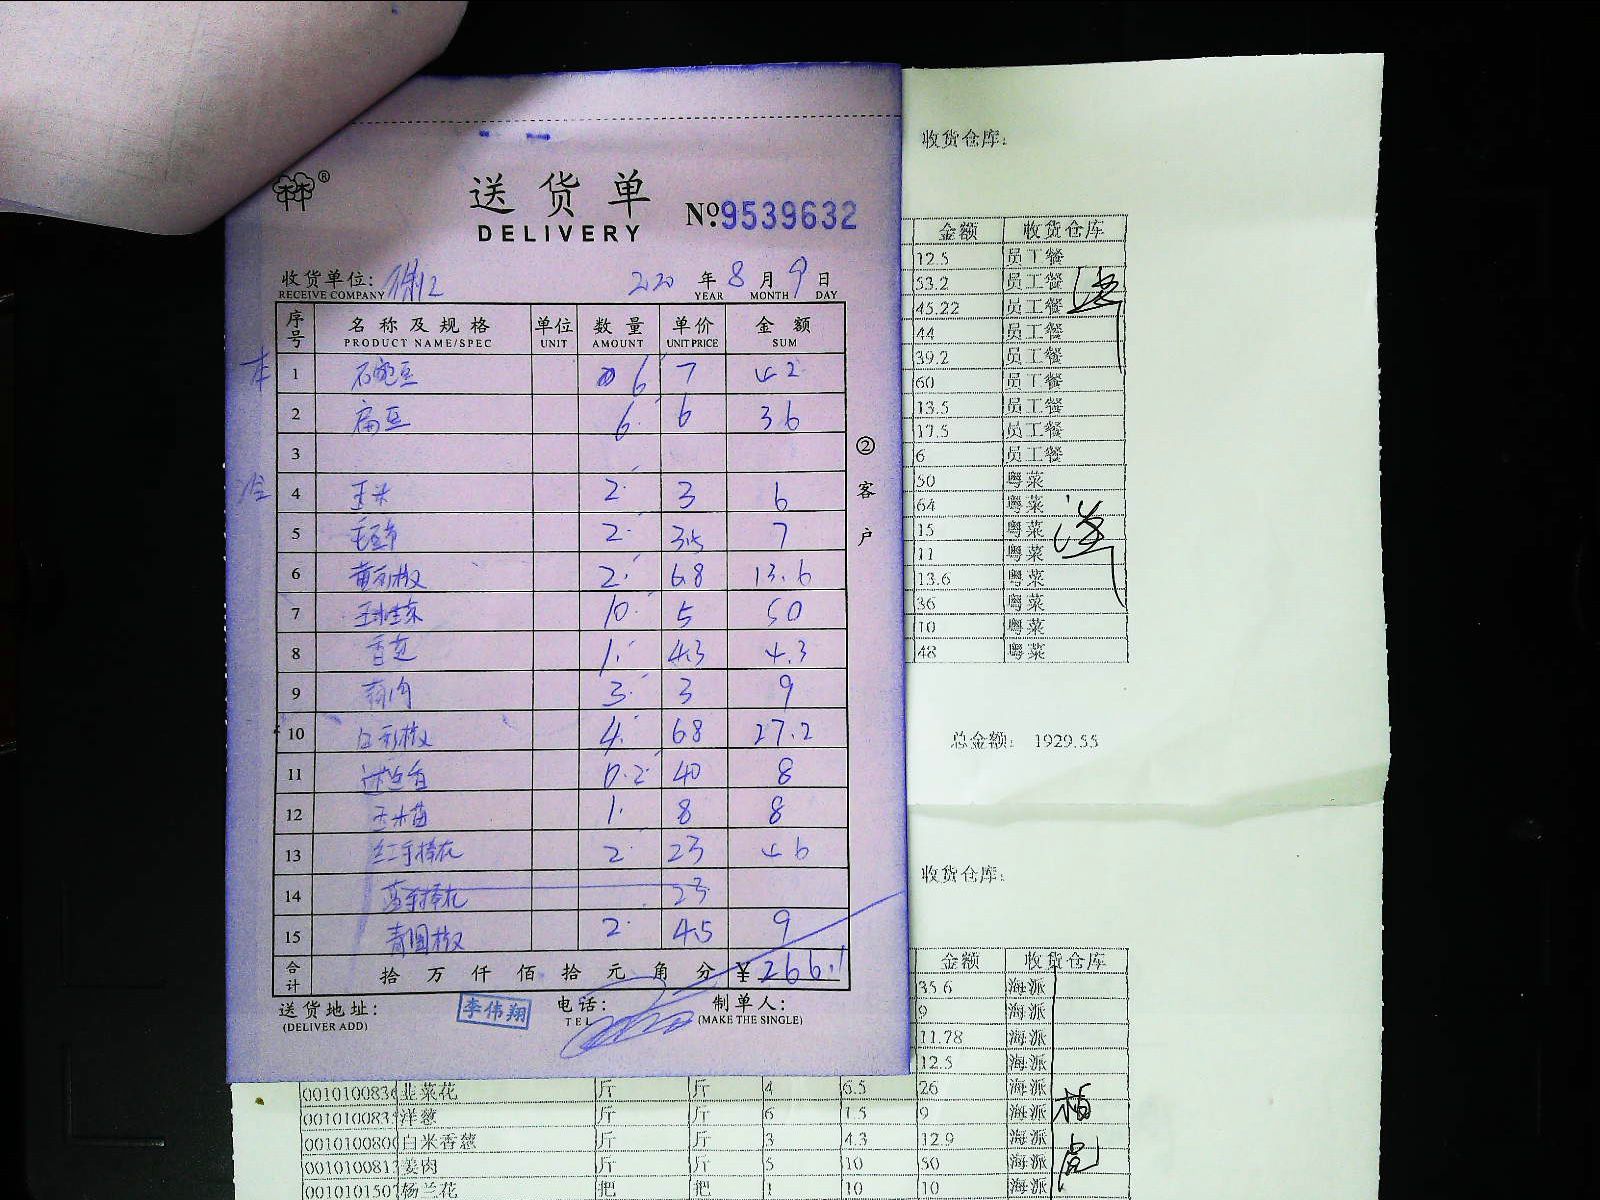 送货单
DELIVERY
№:9539632
收货单位:
RECEIVE COMPANY
2020 年 8 月 9 日
YEAR MONTH DAY
序号 名称及规格 单位 数量 单价 金额
PRODUCT NAME/SPEC UNIT AMOUNT UNIT PRICE SUM
1 石豌豆 6 7 42
2 扁豆 6 6 36
3
4 玉米 2 3 6
5 2 3.5 7
6 黄彩椒 2 6.8 13.6
7 10 5 50
8 1 4.3 4.3
9 3 3 9
10 红彩椒 4 6.8 27.2
11 0.2 40 8
12 玉米苗 1 8 8
13 红手捧花 2 23 46
14 蓝手捧花 23
15 青圆椒 2 4.5 9
合计 拾 万 仟 佰 拾 元 角 分 ¥266.1
送货地址:
(DELIVER ADD)
李伟翔
电话:
TEL
制单人:
(MAKE THE SINGLE)
②客户
收货仓库:
金额 收货仓库
12.5 员工餐
53.2 员工餐
45.22 员工餐
44 员工餐
39.2 员工餐
60 员工餐
13.5 员工餐
17.5 员工餐
6 员工餐
50 粤菜
64 粤菜
15 粤菜
11 粤菜
13.6 粤菜
36 粤菜
10 粤菜
48 粤菜
总金额: 1929.55
收货仓库:
金额 收货仓库
35.6 海派
9 海派
11.78 海派
12.5 海派
韭菜花 斤 斤 4 6.5 26 海派
洋葱 斤 斤 6 1.5 9 海派
白米香葱 斤 斤 3 4.3 12.9 海派
姜肉 斤 斤 5 10 50 海派
杨兰花 把 把 1 10 10 海派